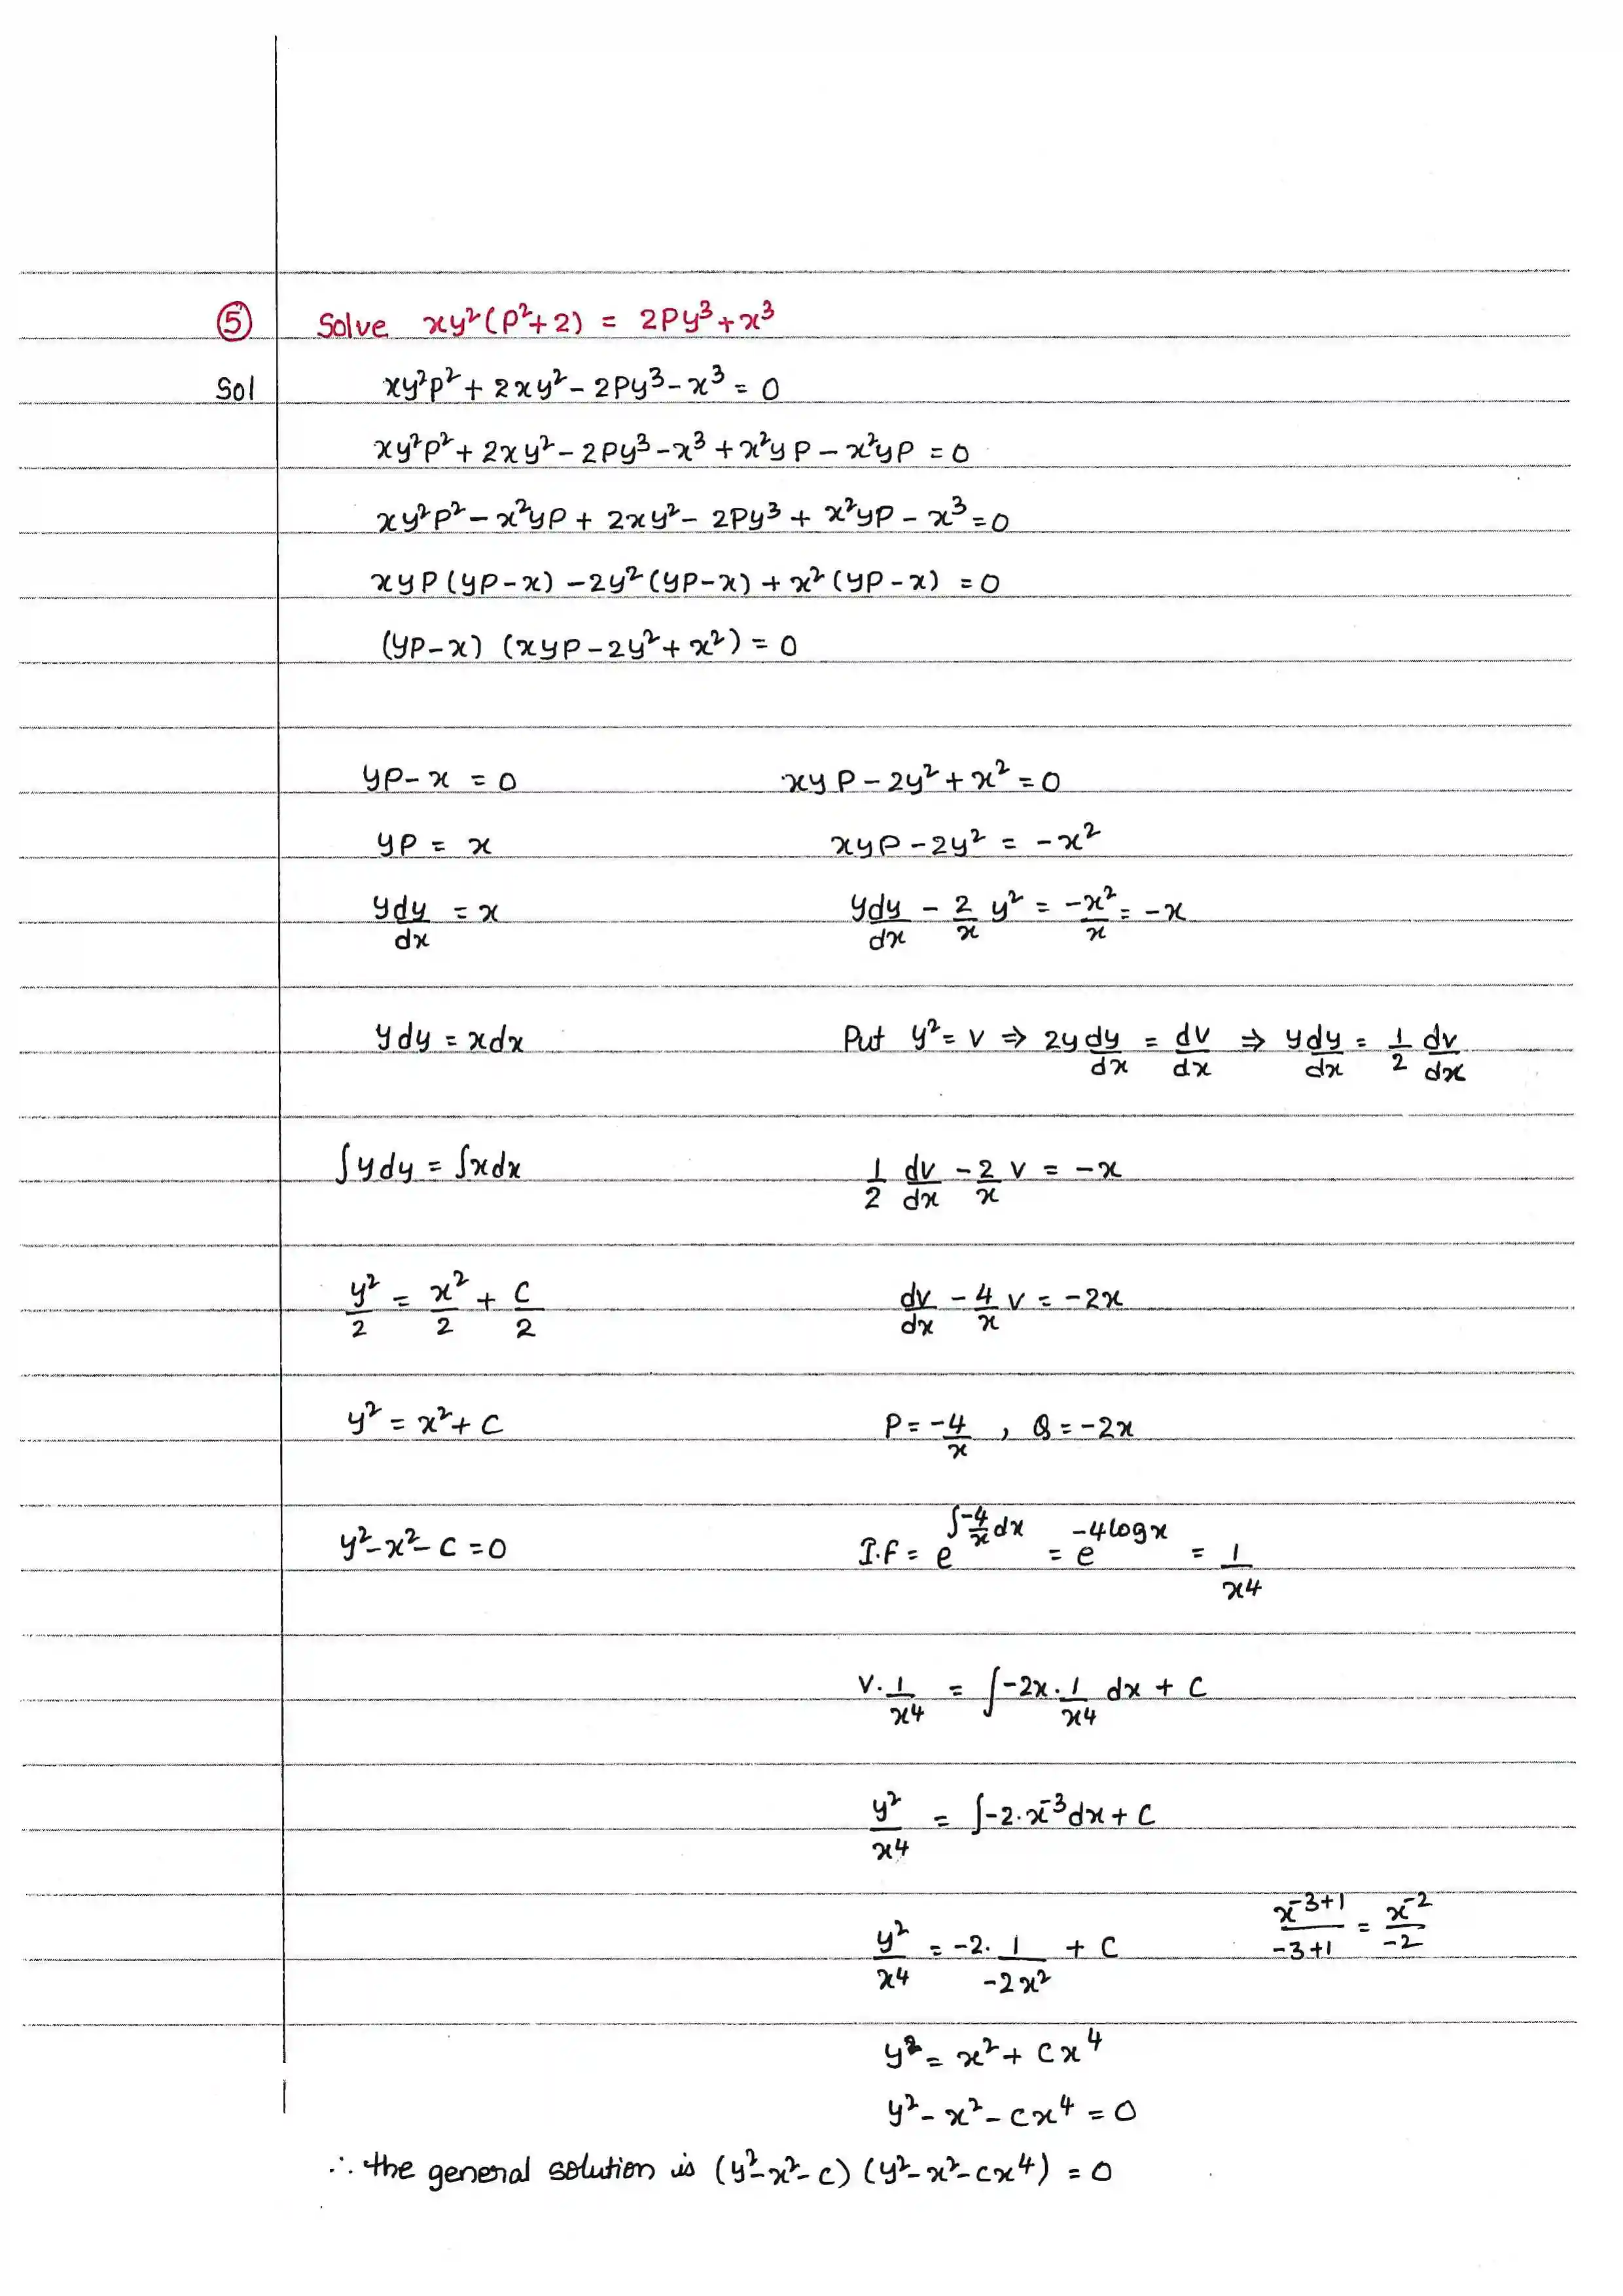 ⑤ Solve xy²(p²+2) = 2Py³+x³
Sol xy²p²+2xy²-2Py³-x³=0
xy²p²+2xy²-2Py³-x³+x²yP-x²yP=0
xy²p²-x²yP+2xy²-2Py³+x²yP-x³=0
xyP(yP-x)-2y²(yP-x)+x²(yP-x)=0
(yP-x)(xyP-2y²+x²)=0
yP-x=0 xyP-2y²+x²=0
yP=x xyP-2y²=-x²
ydy/dx=x ydy/dx-2/x y²=-x²/x=-x
ydy=xdx Put y²=v⇒2ydy/dx=dv/dx⇒ydy/dx=1/2 dv/dx
∫ydy=∫xdx 1/2 dv/dx-2/x v=-x
y²/2=x²/2+C/2 dv/dx-4/x v=-2x
y²=x²+C P=-4/x, Q=-2x
y²-x²-C=0 I.F=e^∫-4/x dx=e^-4logx=1/x4
v.1/x4=∫-2x.1/x4 dx+C
y²/x4=∫-2.x^-3dx+C
y²/x4=-2.1/-2x²+C x^-3+1/-3+1=x^-2/-2
y²=x²+Cx⁴
y²-x²-Cx⁴=0
∴ the general solution is (y²-x²-c)(y²-x²-cx⁴)=0